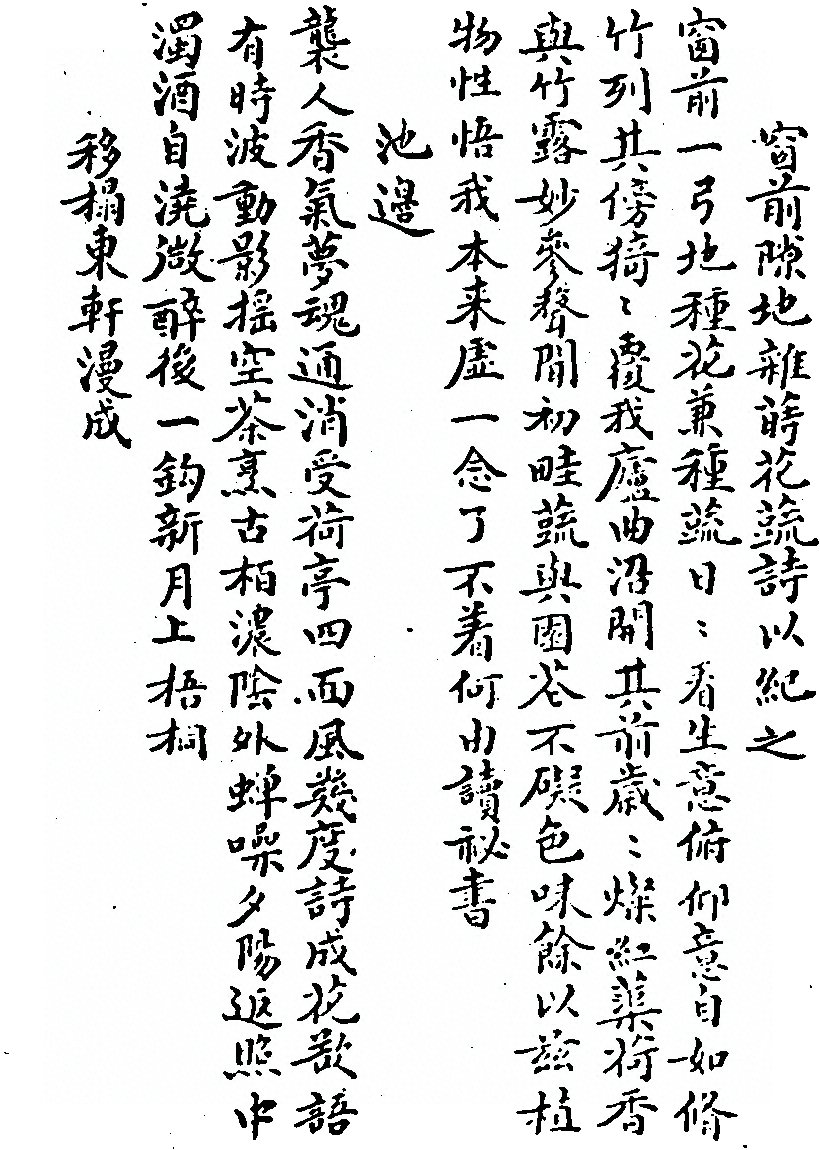 窗前隙地雜蒔花蔬詩以紀之
窗前一弓地種花兼種蔬日〻看生意俯仰意自如脩
竹列其傍猗〻覆我廬曲沼開其前歲〻燦紅蕖荷香
與竹露妙參聲聞初畦蔬與園花不礙色味餘以茲植
物性悟我本来虛一念了不着何由讀祕書
池邊
襲人香氣夢魂通消受荷亭四面風幾度詩成花欲語
有時波動影搖空茶烹古栢濃陰外蟬噪夕陽返照中
濁酒自澆微醉後一鈎新月上梧桐
移榻東軒漫成